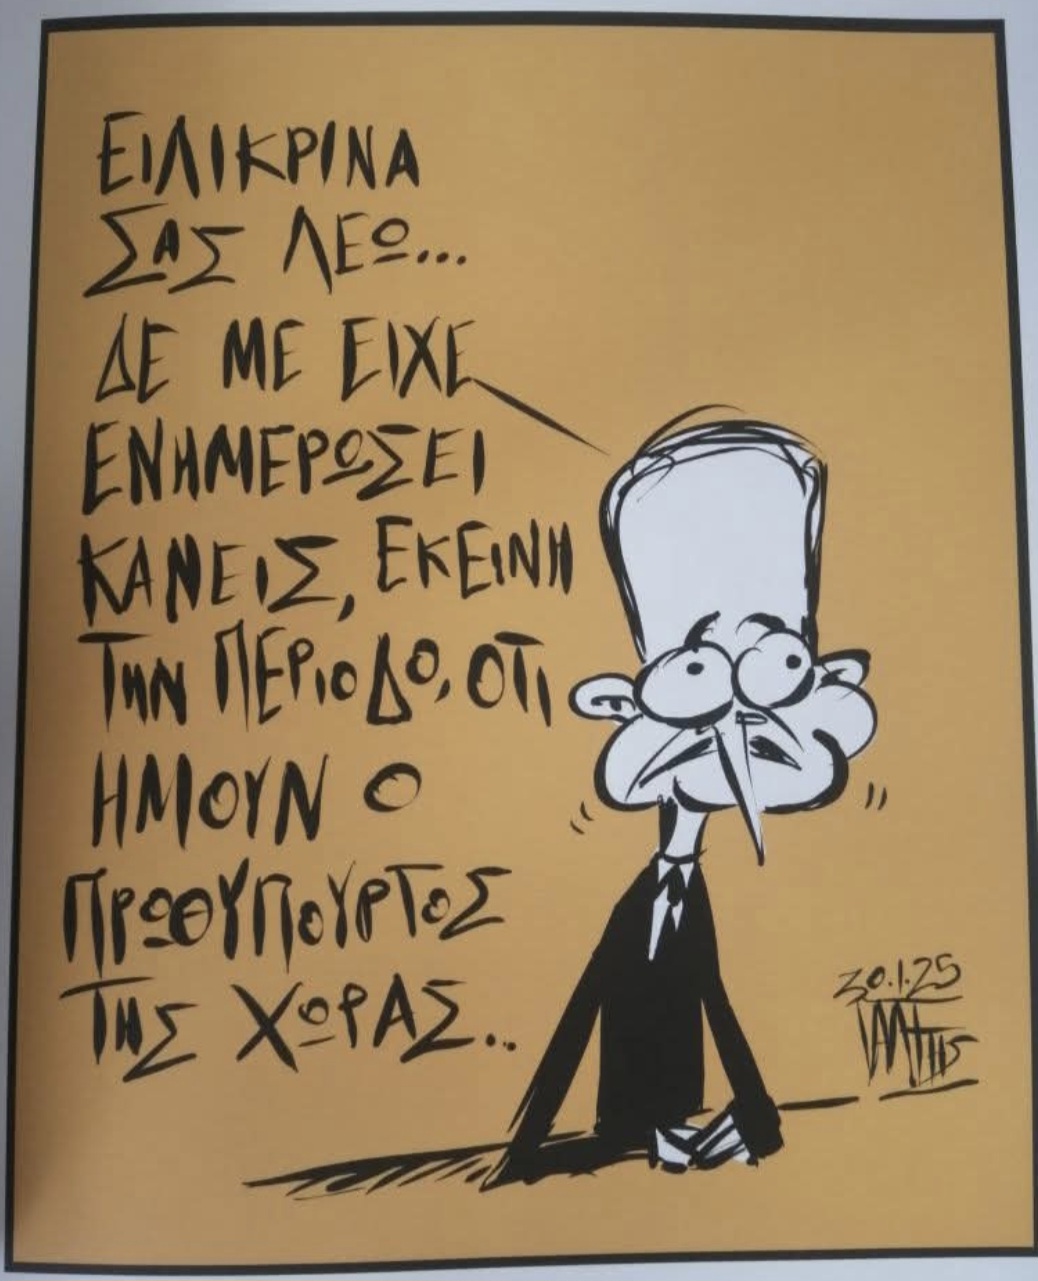 ΕΙΛΙΚΡΙΝΑ
ΣΑΣ ΛΕΩ...
ΔΕ ΜΕ ΕΙΧΕ
ΕΝΗΜΕΡΩΣΕΙ
ΚΑΝΕΙΣ, ΕΚΕΙΝΗ
ΤΗΝ ΠΕΡΙΟΔΟ, ΟΤΙ
ΗΜΟΥΝ Ο
ΠΡΩΘΥΠΟΥΡΓΟΣ
ΤΗΣ ΧΩΡΑΣ..
30.1.25